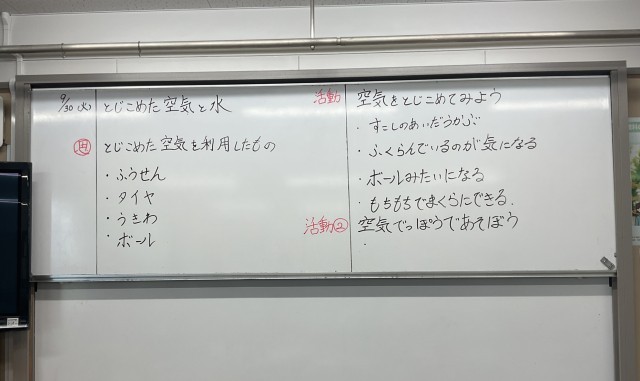 9/30(火) とじこめた空気と水
とじこめた空気を利用したもの
・ふうせん
・タイヤ
・うきわ
・ボール
活動 空気をとじこめてみよう
・すこしのあいだうかぶ
・ふくらんでいるのが気になる
・ボールみたいになる
・もちもちでまくらにできる.
活動② 空気でっぽうであそぼう
・